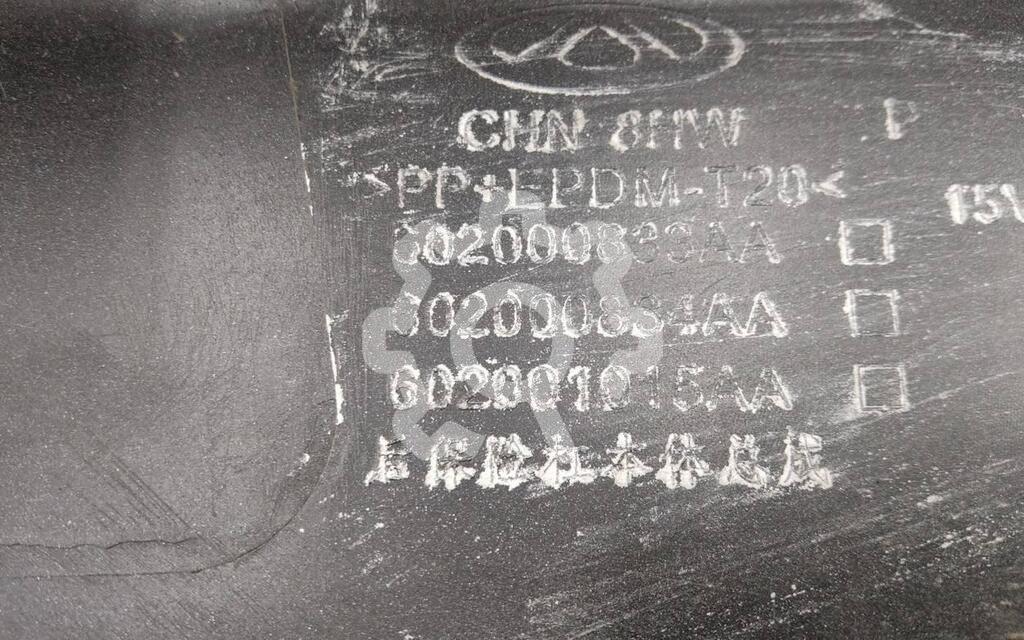 CHN 8HW
P
>PP+EPDM-T20<
602000833AA
602000834AA
602001015AA
后保险杠本体总成